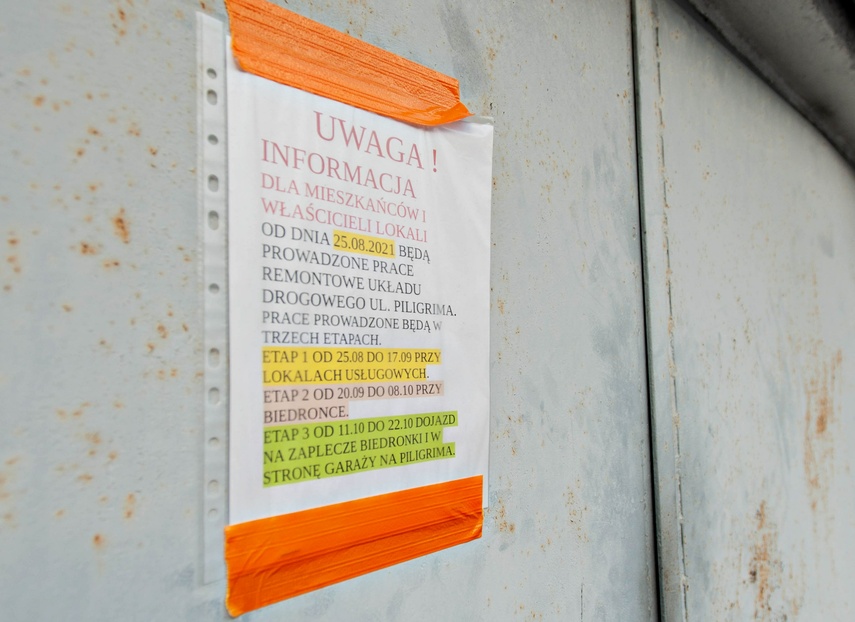 UWAGA !
INFORMACJA
DLA MIESZKAŃCÓW I
WŁAŚCICIELI LOKALI
OD DNIA 25.08.2021 BĘDĄ
PROWADZONE PRACE
REMONTOWE UKŁADU
DROGOWEGO UL. PILIGRIMA.
PRACE PROWADZONE BĘDĄ W
TRZECH ETAPACH.
ETAP 1 OD 25.08 DO 17.09 PRZY
LOKALACH USŁUGOWYCH.
ETAP 2 OD 20.09 DO 08.10 PRZY
BIEDRONCE.
ETAP 3 OD 11.10 DO 22.10 DOJAZD
NA ZAPLECZE BIEDRONKI I W
STRONĘ GARAŻY NA PILIGRIMA.